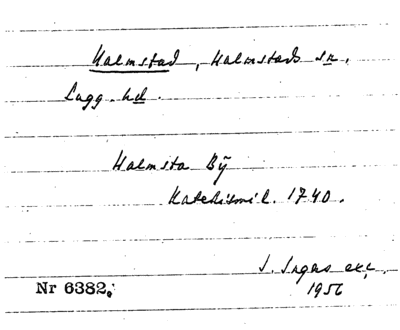 Halmstad, Halmstads sn.
Lugg. hd.
Halmsta Bÿ
Katekismil. 1740.
J. Ingers exc.
Nr 6382. 1956